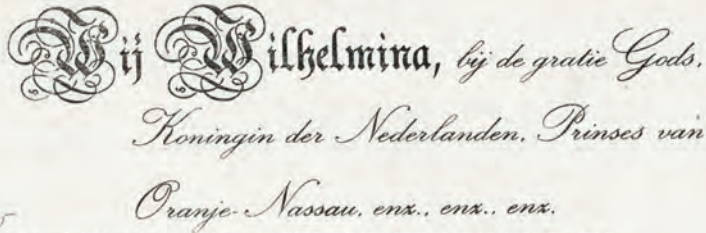 Wij Wilhelmina, bij de gratie Gods,
Koningin der Nederlanden, Prinses van
Oranje-Nassau, enz., enz., enz.
5